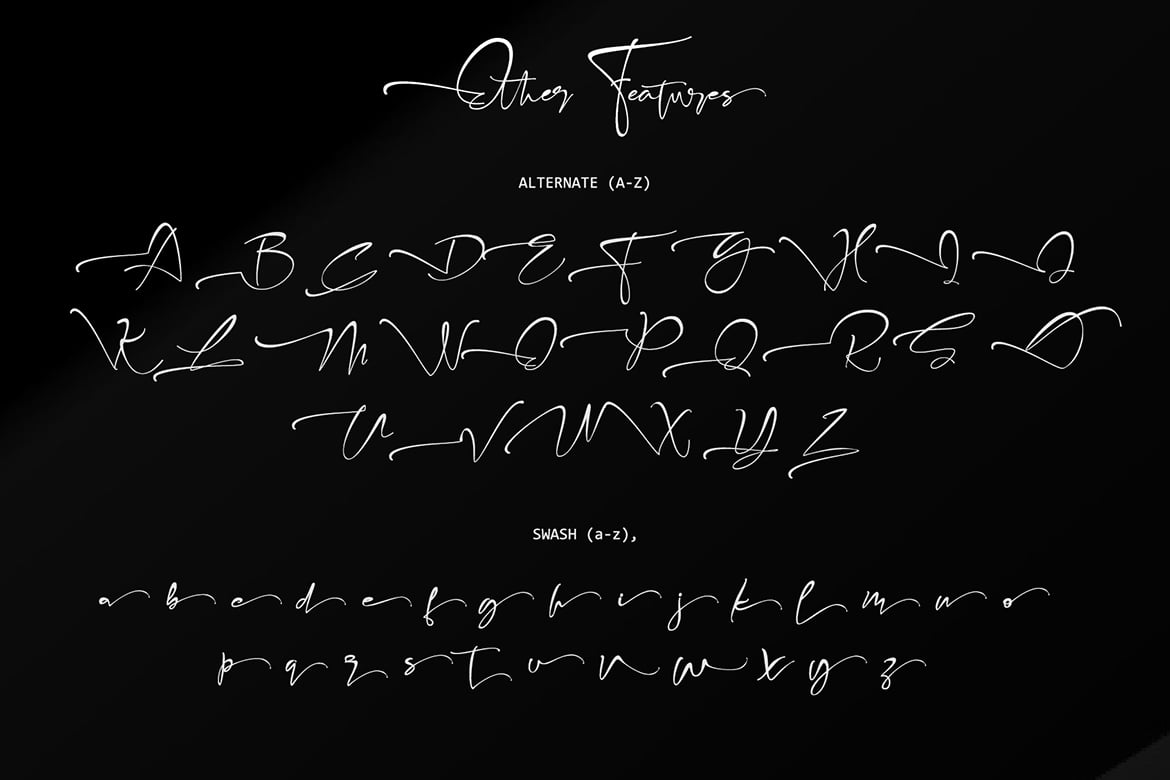 Other Features
ALTERNATE (A-Z)
A B C D E F G H I J
K L M N O P Q R S T
U V W X Y Z
SWASH (a-z),
a b c d e f g h i j k l m n o
p q r s t u v w x y z